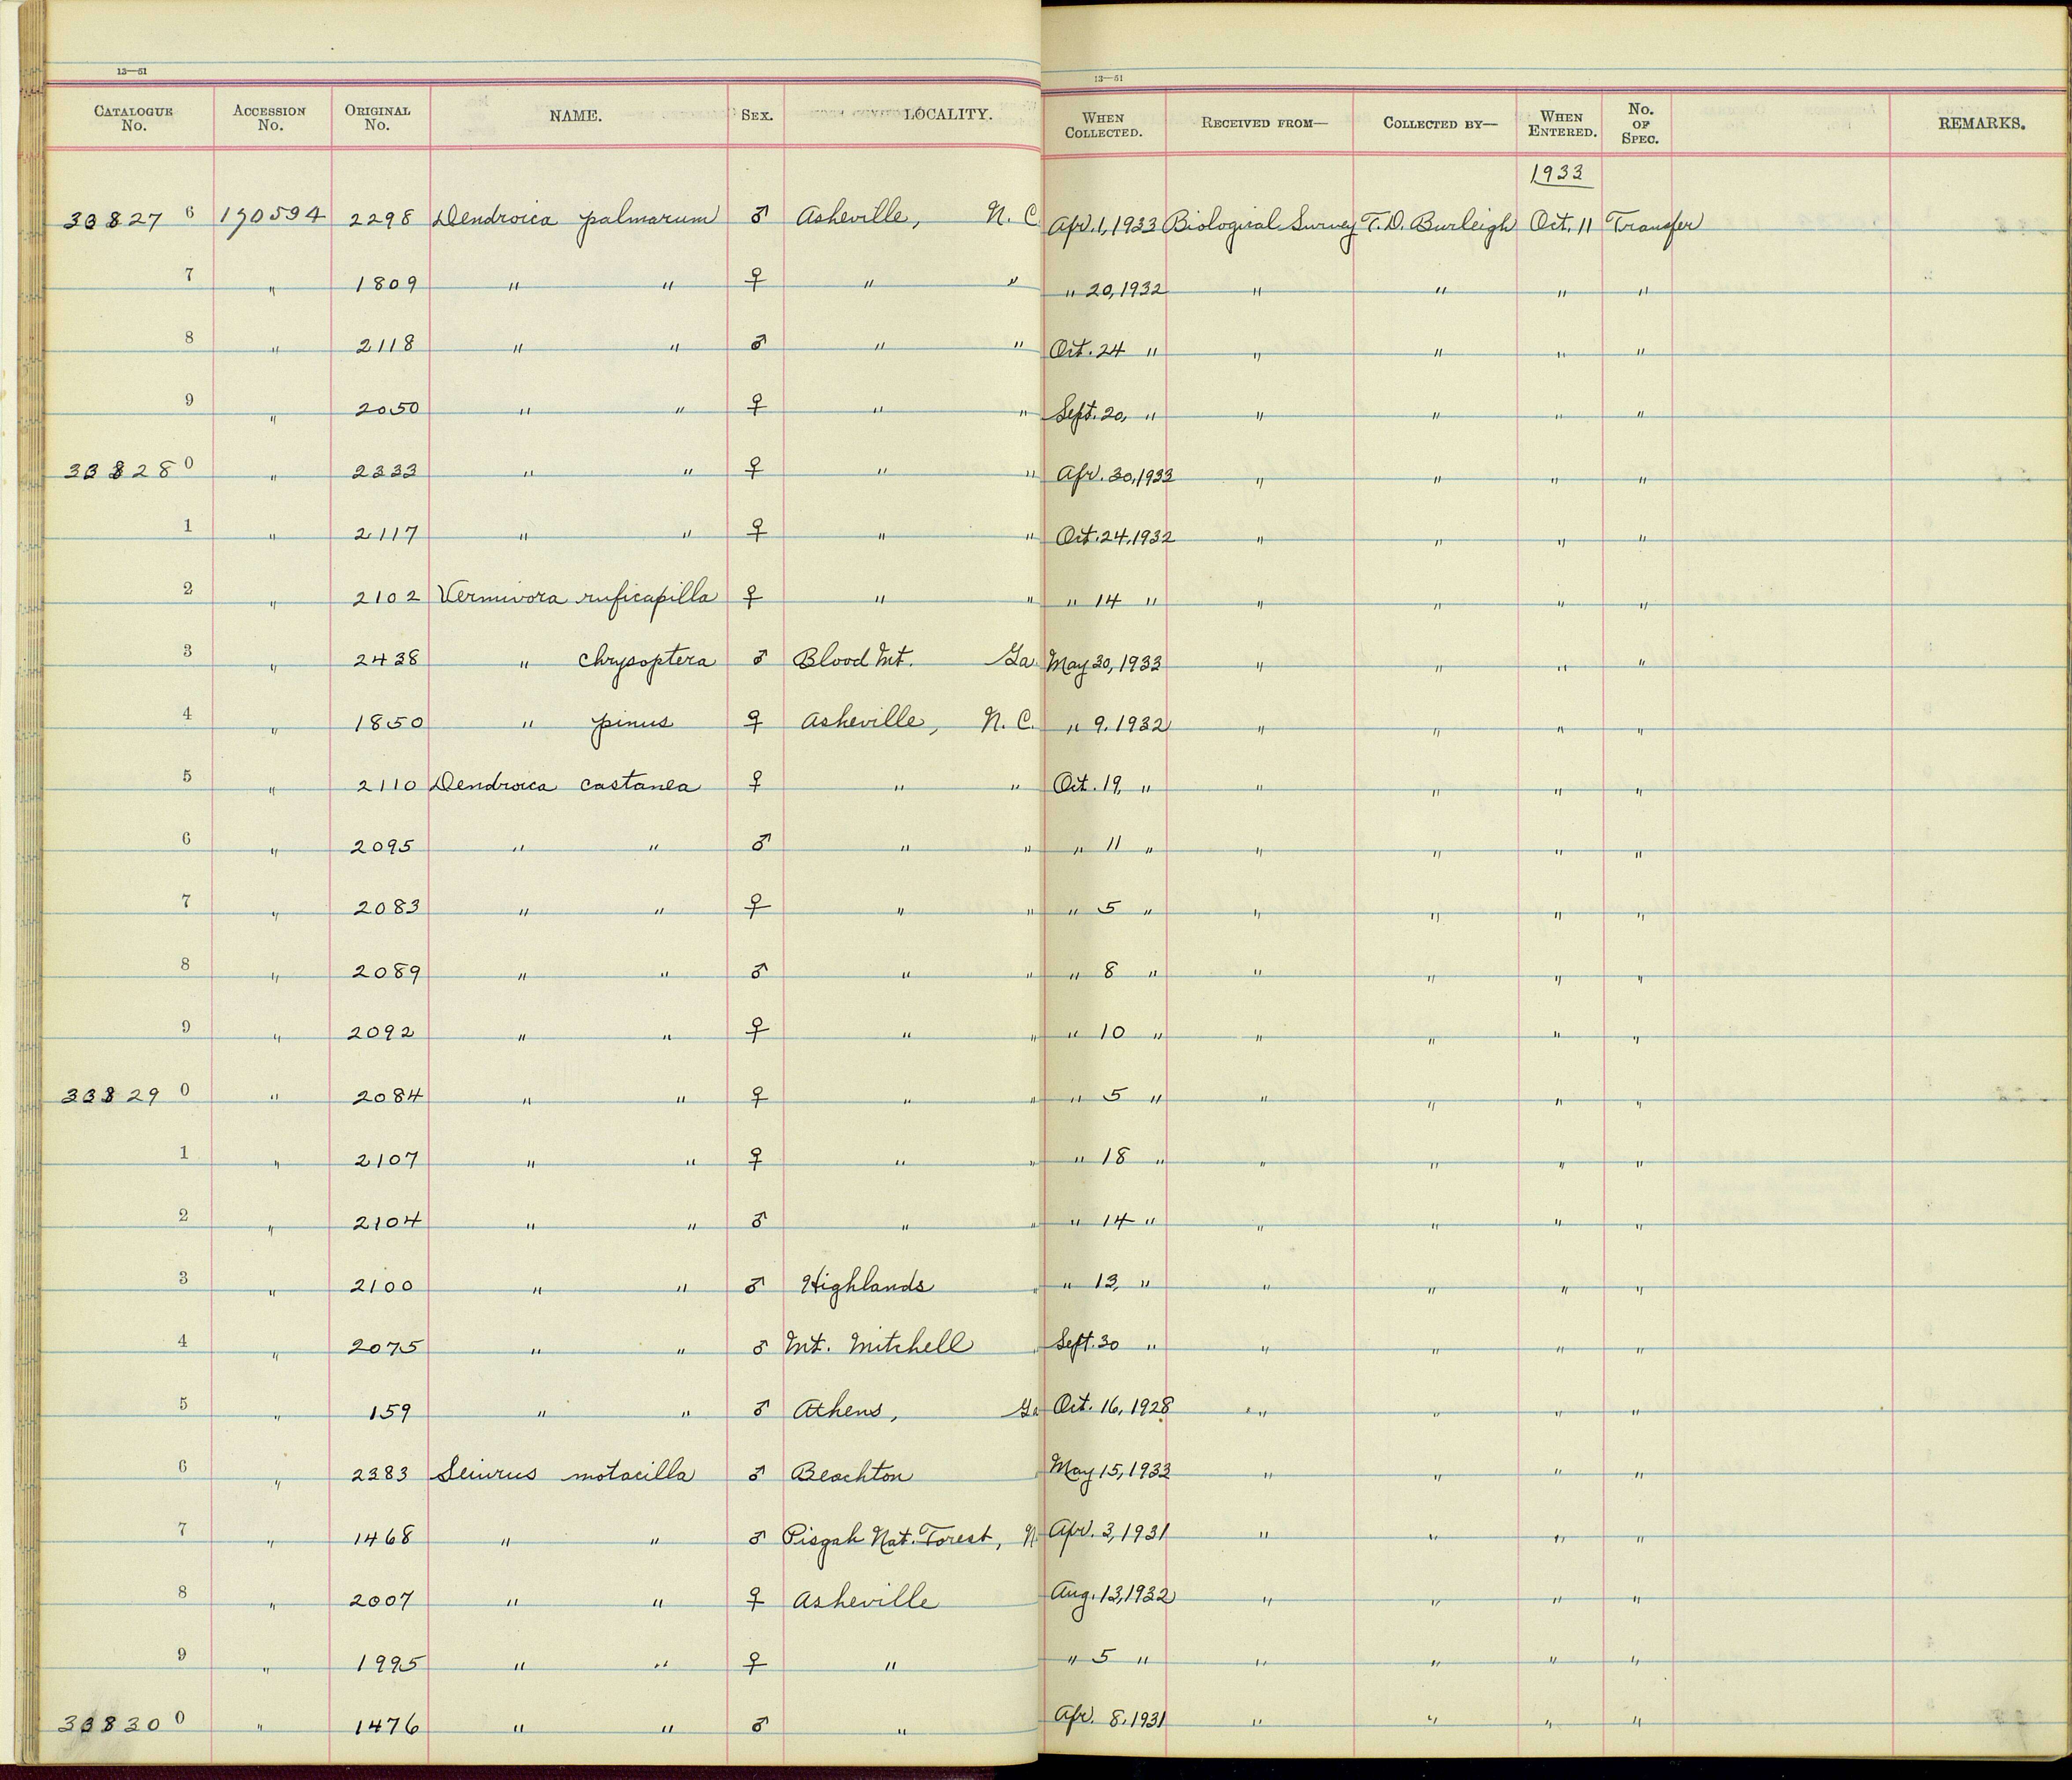 13—51 13—51
CATALOGUE No. ACCESSION No. ORIGINAL No. NAME. SEX. LOCALITY. WHEN COLLECTED. RECEIVED FROM— COLLECTED BY— WHEN ENTERED. No. OF SPEC. REMARKS.
1933
33827 6 190594 2298 Dendroica palmarum ♂ Asheville, N. C. Apr. 1, 1933 Biological Survey T. D. Burleigh Oct. 11 Transfer
7 " 1809 " " ♀ " " " 20, 1932 " " " "
8 " 2118 " " ♂ " " Oct. 24 " " " " "
9 " 2050 " " ♀ " " Sept. 20, " " " " "
33828 0 " 2333 " " ♀ " " Apr. 30, 1933 " " " "
1 " 2117 " " ♀ " " Oct. 24, 1932 " " " "
2 " 2102 Vermivora ruficapilla ♀ " " " 14 " " " " "
3 " 2438 " chrysoptera ♂ Blood Mt. Ga. May 30, 1933 " " " "
4 " 1850 " pinus ♀ Asheville, N. C. " 9, 1932 " " " "
5 " 2110 Dendroica castanea ♀ " " Oct. 19, " " " " "
6 " 2095 " " ♂ " " " 11 " " " " "
7 " 2083 " " ♀ " " " 5 " " " " "
8 " 2089 " " ♂ " " " 8 " " " " "
9 " 2092 " " ♀ " " " 10 " " " " "
33829 0 " 2084 " " ♀ " " " 5 " " " " "
1 " 2107 " " ♀ " " " 18 " " " " "
2 " 2104 " " ♂ " " " 14 " " " " "
3 " 2100 " " ♂ Highlands " " 13, " " " " "
4 " 2075 " " ♂ Mt. Mitchell " Sept. 30 " " " " "
5 " 159 " " ♂ Athens, Ga Oct. 16, 1928 " " " "
6 " 2383 Seiurus motacilla ♂ Beachton May 15, 1933 " " " "
7 " 1468 " " ♂ Pisgah Nat. Forest, N. Apr. 3, 1931 " " " "
8 " 2007 " " ♀ Asheville Aug. 13, 1932 " " " "
9 " 1995 " " ♀ " " 5 " " " " "
33830 0 " 1476 " " ♂ " Apr. 8, 1931 " " " "